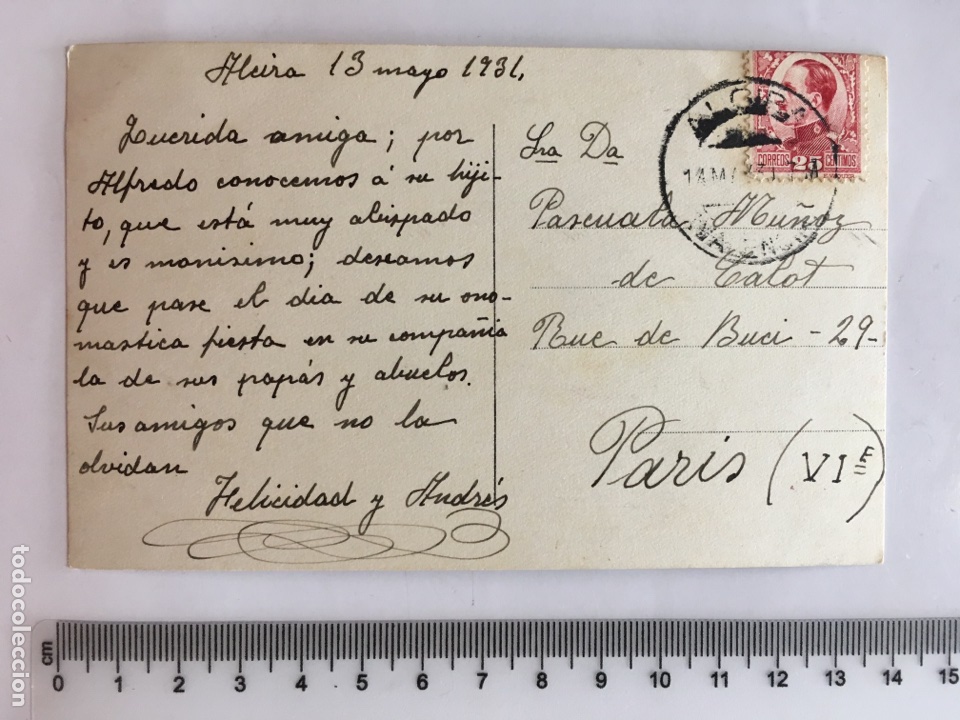 Alcira 13 mayo 1931.
Querida amiga; por
Alfredo conocemos á su hiji-
to, que está muy abispado
y es monisimo; deseamos
que pase el dia de su ono-
mastica fiesta en su compañia
la de sus papás y abuelos.
Sus amigos que no la
olvidan
Felicidad y Andrés
Sra Da
Pascuala Muñoz
de Calot
Rue de Buci - 29-
Paris (VIE)
CORREOS 25 CENTIMOS
ALCIRA
14 MA
todocoleccion
cm
0 1 2 3 4 5 6 7 8 9 10 11 12 13 14 15